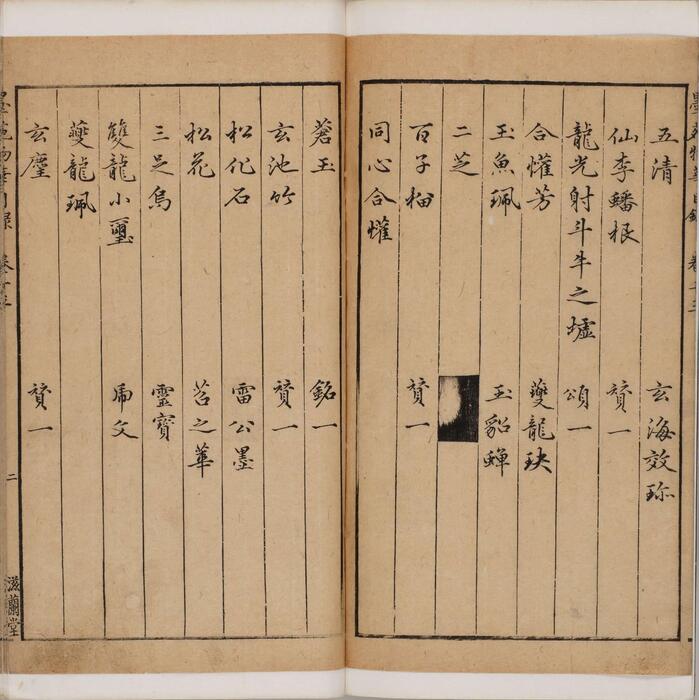 五清 玄海效珎
仙李蟠根 贊一
龍光射斗牛之墟 頌一
合懽芳 夔龍玦
玉魚珮 玉貂蟬
二芝
百子榴 贊一
同心合懽
蒼玉 銘一
玄池竹 贊一
松化石 雷公墨
松花 苕之華
三足烏 靈寶
雙龍小璽 虎文
夔龍珮
玄麈 贊一
二 滋蘭堂